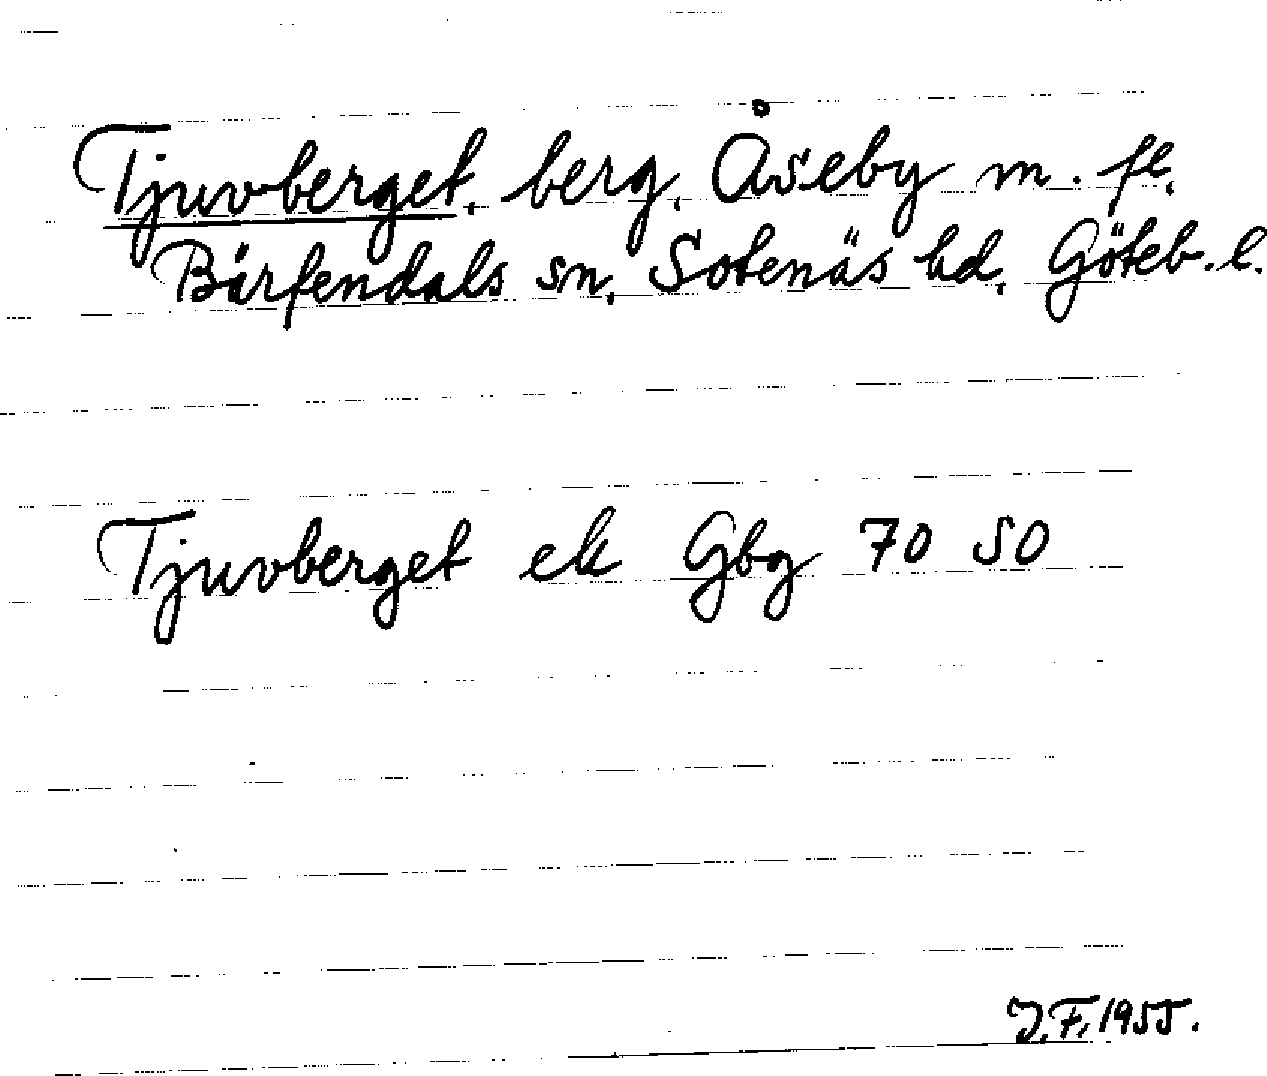 Tjuvberget, berg, Åseby m. fl.
Bärfendals sn, Sotenäs hd, Göteb. l.
Tjuvberget ek Gbg 70 50
J.F. 1955.